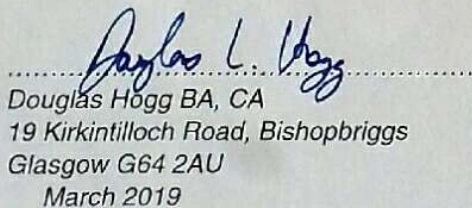 Douglas L. Hogg
Douglas Hogg BA, CA
19 Kirkintilloch Road, Bishopbriggs
Glasgow G64 2AU
March 2019